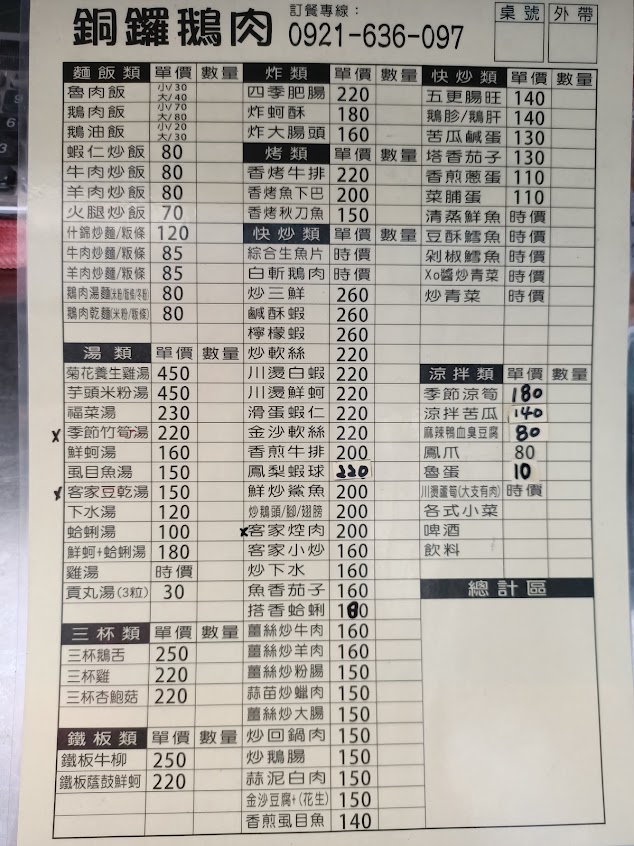 銅鑼鵝肉
訂餐專線：
0921-636-097
桌號 外帶
麵飯類 單價 數量
魯肉飯 小/30 大/40
鵝肉飯 小/70 大/80
鵝油飯 小/20 大/30
蝦仁炒飯 80
牛肉炒飯 80
羊肉炒飯 80
火腿炒飯 70
什錦炒麵/粄條 120
牛肉炒麵/粄條 85
羊肉炒麵/粄條 85
鵝肉湯麵(米粉/粄條/冬粉) 80
鵝肉乾麵(米粉/粄條) 80
湯類 單價 數量
菊花養生雞湯 450
芋頭米粉湯 450
福菜湯 230
x 季節竹筍湯 220
鮮蚵湯 160
虱目魚湯 150
x 客家豆乾湯 150
下水湯 120
蛤蜊湯 100
鮮蚵+蛤蜊湯 180
雞湯 時價
貢丸湯(3粒) 30
三杯類 單價 數量
三杯鵝舌 250
三杯雞 220
三杯杏鮑菇 220
鐵板類 單價 數量
鐵板牛柳 250
鐵板蔭鼓鮮蚵 220
炸類 單價 數量
四季肥腸 220
炸蚵酥 180
炸大腸頭 160
烤類 單價 數量
香烤牛排 220
香烤魚下巴 200
香烤秋刀魚 150
快炒類 單價 數量
綜合生魚片 時價
白斬鵝肉 時價
炒三鮮 260
鹹酥蝦 260
檸檬蝦 260
炒軟絲 220
川燙白蝦 220
川燙鮮蚵 220
滑蛋蝦仁 220
金沙軟絲 220
香煎牛排 200
鳳梨蝦球 220
鮮炒鯊魚 200
炒鵝頭/腳/翅膀 200
x客家焢肉 200
客家小炒 160
炒下水 160
魚香茄子 160
搭香蛤蜊 180
薑絲炒牛肉 160
薑絲炒羊肉 160
薑絲炒粉腸 150
蒜苗炒蠟肉 150
薑絲炒大腸 150
炒回鍋肉 150
炒鵝腸 150
蒜泥白肉 150
金沙豆腐+(花生) 150
香煎虱目魚 140
快炒類 單價 數量
五更腸旺 140
鵝胗/鵝肝 140
苦瓜鹹蛋 130
塔香茄子 130
香煎蔥蛋 110
菜脯蛋 110
清蒸鮮魚 時價
豆酥鱈魚 時價
剁椒鱈魚 時價
Xo醬炒青菜 時價
炒青菜 時價
涼拌類 單價 數量
季節涼筍 180
涼拌苦瓜 140
麻辣鴨血臭豆腐 80
鳳爪 80
魯蛋 10
川燙蘆筍(大支有肉) 時價
各式小菜
啤酒
飲料
總計區